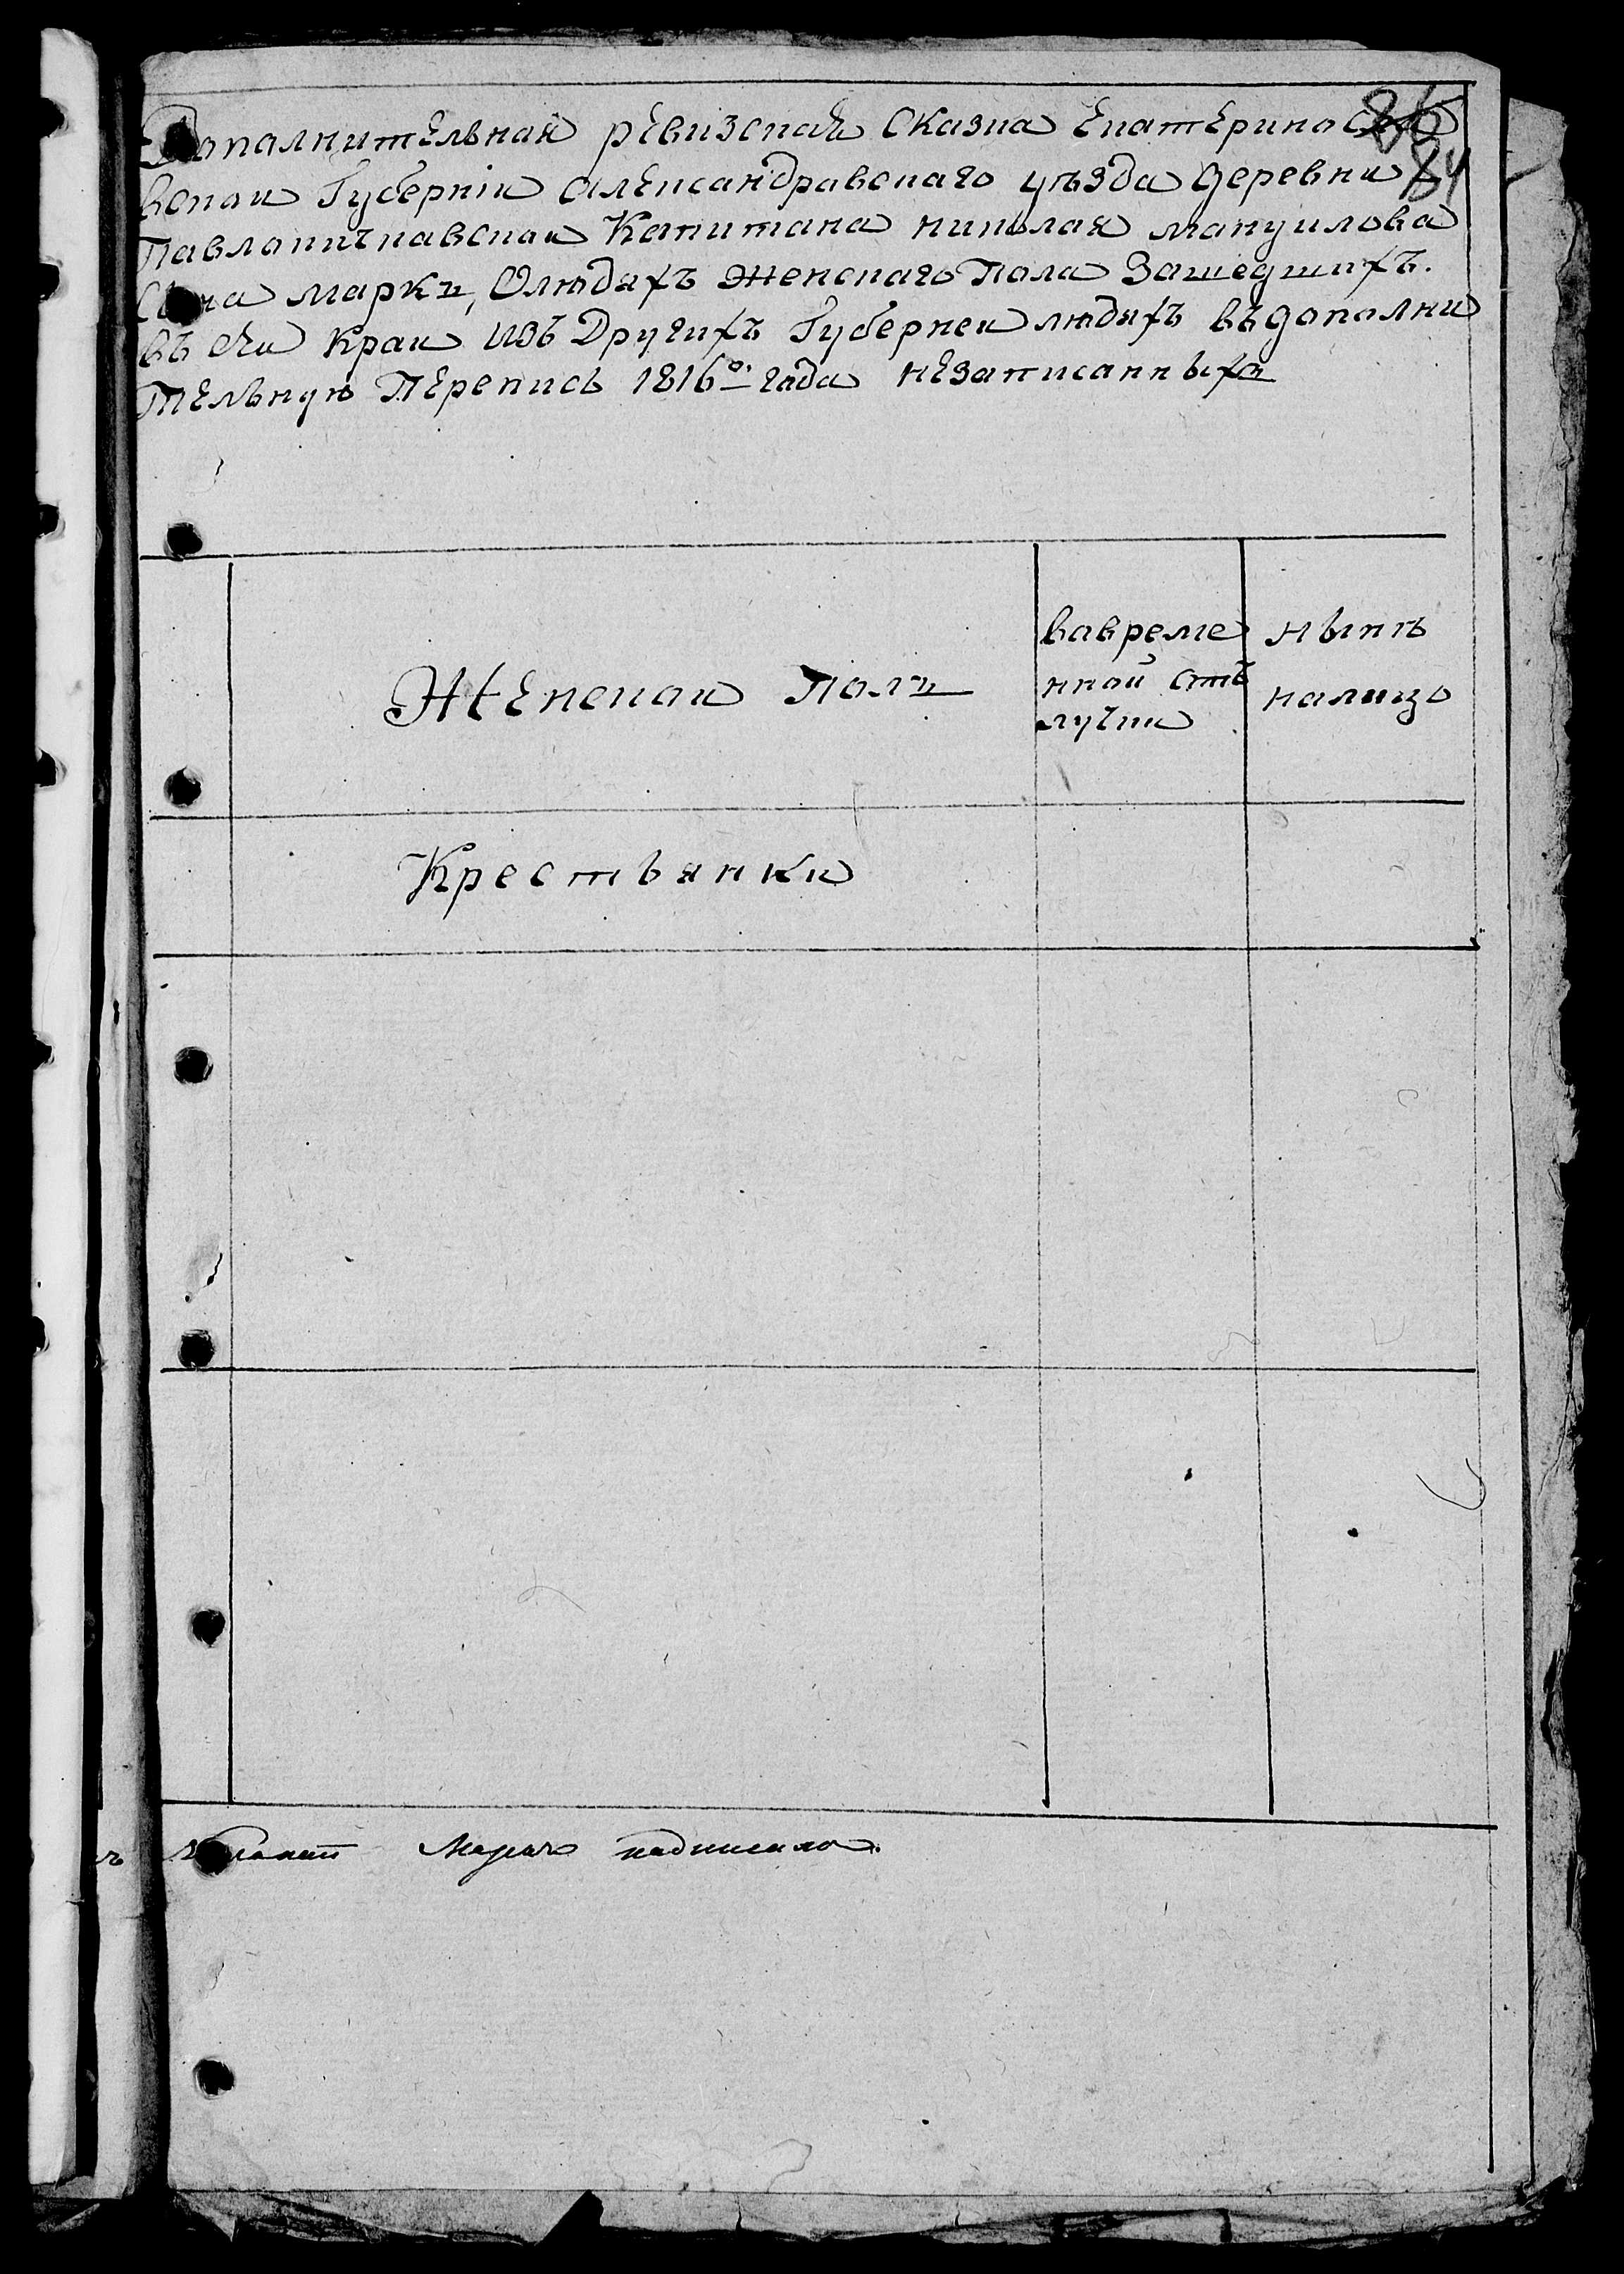 86
84
Дополнительная ревизская Сказка Екатериносла
вской Губернiи Александравскаго уѣзда деревни
Павлопиткавской Капитана николая мануилова
Сына марка, Олюдяхъ женскаго Пола Зашедшихъ.
въ сеи Краи изъ Другихъ Губерней людяхъ въдополни
тельную Перепись 1816го года незаписанныхъ
Женской Полъ
вавреме
нной отъ
лучки
нынѣ
налицо
Крестьянки